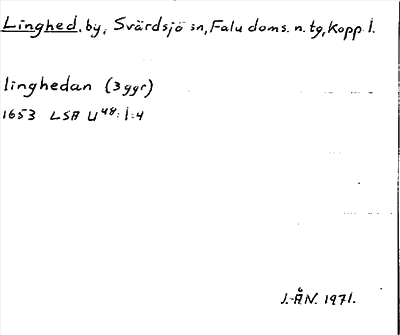 Linghed, by, Svärdsjö sn, Falu doms. n. tg, Kopp. l.
linghedan (3 ggr)
1653 LSA U48:1:4
J.-Å N. 1971.